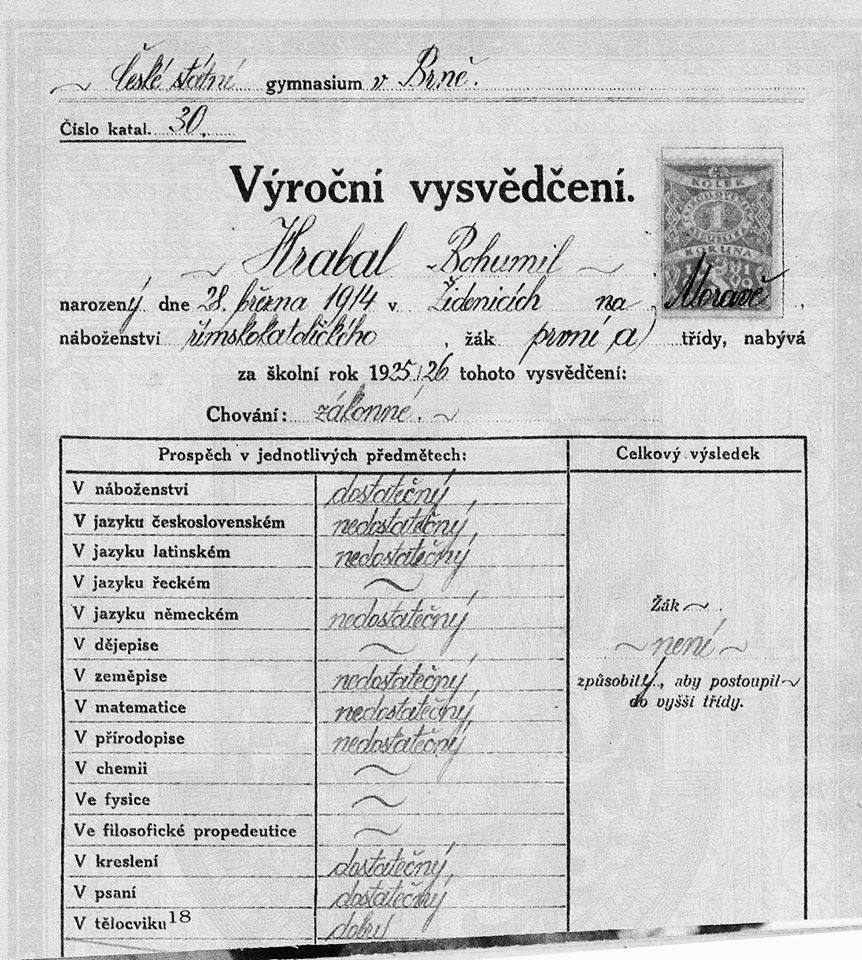 České státní gymnasium v Brně.
Číslo katal. 30.
Výroční vysvědčení.
KOLEK
1
KORUNA
Hrabal Bohumil
narozený dne 28. března 1914 v Židenicích na Moravě,
náboženství římskokatolického, žák první a) třídy, nabývá
za školní rok 1925/26 tohoto vysvědčení:
Chování: zákonné.
Prospěch v jednotlivých předmětech: Celkový výsledek
V náboženství dostatečný,
V jazyku československém nedostatečný,
V jazyku latinském nedostatečný
V jazyku řeckém ~
V jazyku německém nedostatečný
V dějepise ~
V zeměpise nedostatečný,
V matematice nedostatečný,
V přírodopise nedostatečný
V chemii ~
Ve fysice ~
Ve filosofické propedeutice ~
V kreslení dostatečný,
V psaní dostatečný
V tělocviku18 dobrý
Žák ~
~ není ~
způsobilý, aby postoupil~
do vyšší třídy.